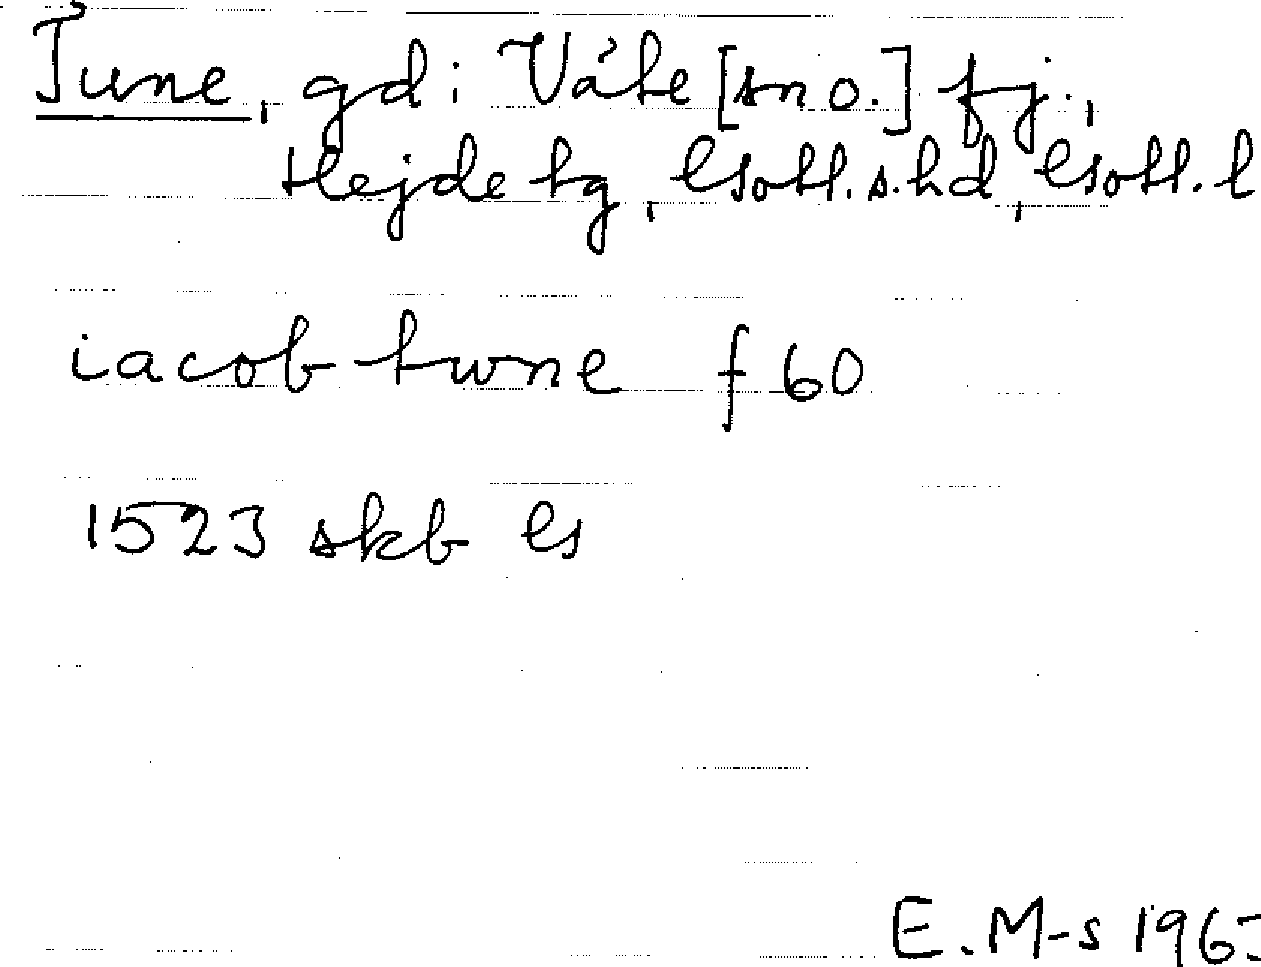 Tune, gd i Väte [sn o.] fj.,
Hejde tg, Gotl. s. hd, Gotl. l
iacob twne f 60
1523 skb G
E. M-s 196